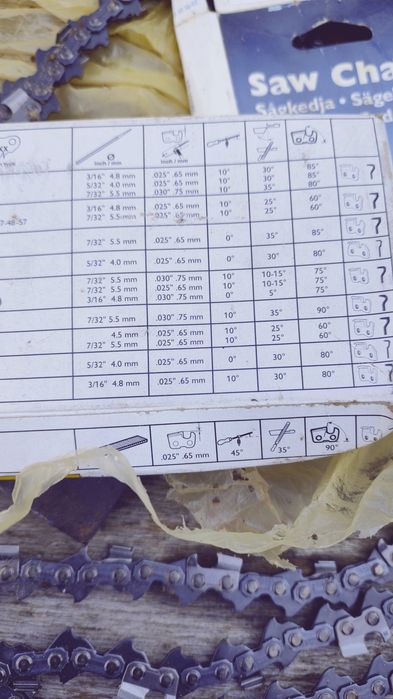 Saw Cha
Sågkedja • Säge
Ø
Inch / mm
Inch / mm
3/16" 4.8 mm .025" .65 mm 10° 30° 85°
5/32" 4.0 mm .025" .65 mm 10° 30° 85°
7/32" 5.5 mm .030" .75 mm 10° 35° 80° ?
3/16" 4.8 mm .025" .65 mm 10° 25° 60°
7/32" 5.5 mm .025" .65 mm 10° 25° 60° ?
7/32" 5.5 mm .025" .65 mm 0° 35° 85° ?
5/32" 4.0 mm .025" .65 mm 0° 30° 80° ?
7/32" 5.5 mm .030" .75 mm 10° 10-15° 75°
7/32" 5.5 mm .025" .65 mm 10° 10-15° 75° ?
3/16" 4.8 mm .030" .75 mm 0° 5° 75°
7/32" 5.5 mm .030" .75 mm 10° 35° 90° ?
4.5 mm .025" .65 mm 10° 25° 60°
7/32" 5.5 mm .025" .65 mm 10° 25° 60° ?
5/32" 4.0 mm .025" .65 mm 0° 30° 80° ?
3/16" 4.8 mm .025" .65 mm 10° 30° 80° ?
.025" .65 mm 45° 35° 90°